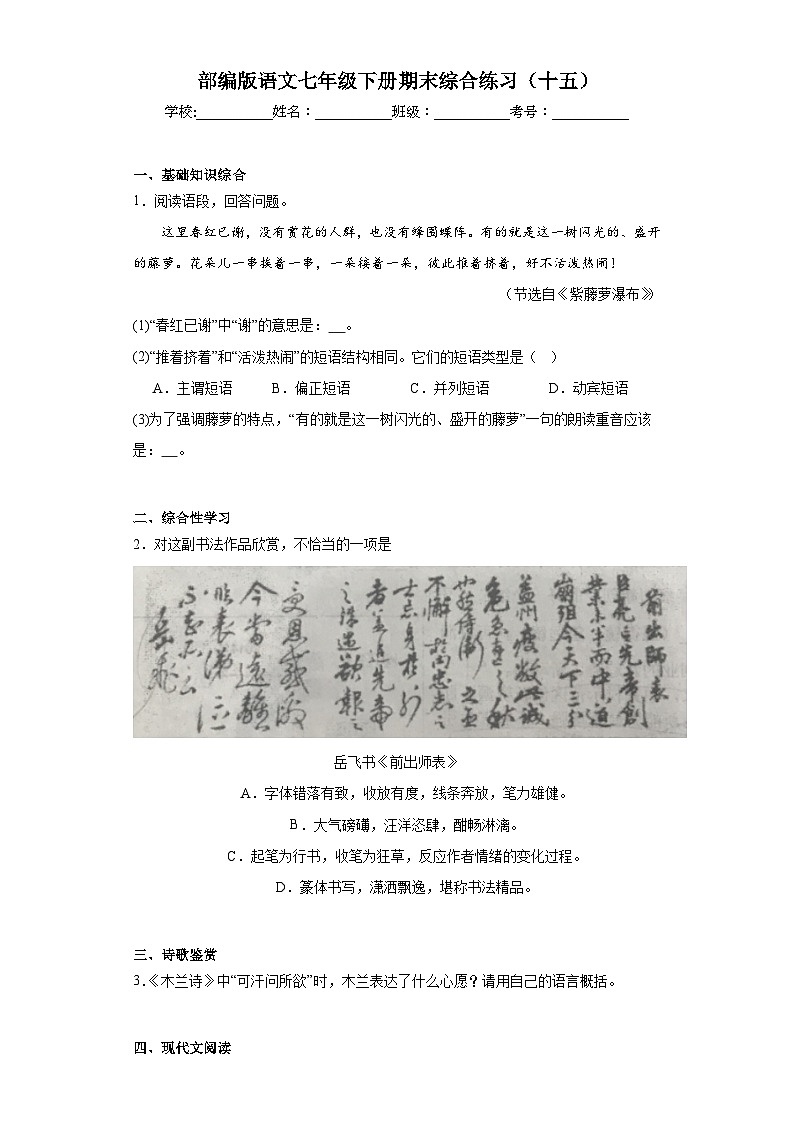 部编版语文七年级下册期末综合练习（十五）
学校:___________姓名：___________班级：___________考号：___________
一、基础知识综合
1．阅读语段，回答问题。
这里春红已谢，没有赏花的人群，也没有蜂围蝶阵。有的就是这一树闪光的、盛开
的藤萝。花朵儿一串挨着一串，一朵接着一朵，彼此推着挤着，好不活泼热闹！
（节选自《紫藤萝瀑布》）
(1)“春红已谢”中“谢”的意思是：__。
(2)“推着挤着”和“活泼热闹”的短语结构相同。它们的短语类型是（　）
A．主谓短语　B．偏正短语　C．并列短语　D．动宾短语
(3)为了强调藤萝的特点，“有的就是这一树闪光的、盛开的藤萝”一句的朗读重音应该
是：__。
二、综合性学习
2．对这副书法作品欣赏，不恰当的一项是
前出師表
臣亮言先帝創
業未半而中道
崩殂今天下三分
益州疲敝此誠
危急存亡之秋
也然侍衛之臣
不懈於內忠志之
士忘身於外
者蓋追先帝
之殊遇欲報之
受恩感激
今當遠離
臨表涕泣
不知所云
岳飛
岳飞书《前出师表》
A．字体错落有致，收放有度，线条奔放，笔力雄健。
B．大气磅礴，汪洋恣肆，酣畅淋漓。
C．起笔为行书，收笔为狂草，反应作者情绪的变化过程。
D．篆体书写，潇洒飘逸，堪称书法精品。
三、诗歌鉴赏
3.《木兰诗》中“可汗问所欲”时，木兰表达了什么心愿？请用自己的语言概括。
四、现代文阅读